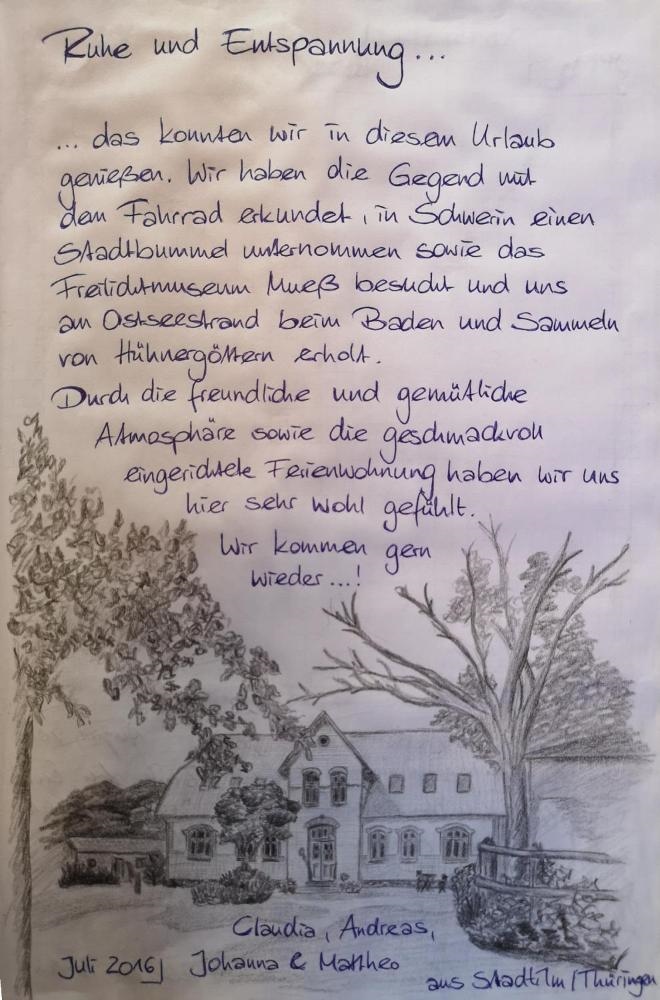 Ruhe und Entspannung...
... das konnten wir in diesem Urlaub
genießen. Wir haben die Gegend mit
dem Fahrrad erkundet, in Schwerin einen
Stadtbummel unternommen sowie das
Freilichtmuseum Mueß besucht und uns
am Ostseestrand beim Baden und Sammeln
von Hühnergöttern erholt.
Durch die freundliche und gemütliche
Atmosphäre sowie die geschmackvoll
eingerichtete Ferienwohnung haben wir uns
hier sehr wohl gefühlt.
Wir kommen gern
wieder...!
Claudia, Andreas,
Juli 2016 Johanna & Mattheo
aus Stadtilm/Thüringen